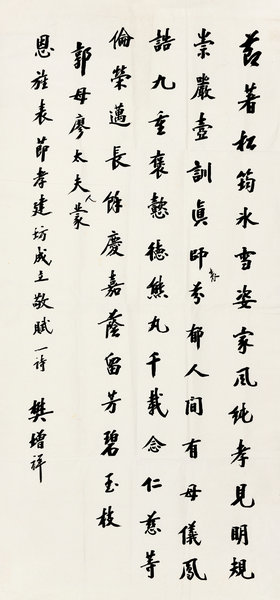 節著松筠冰雪姿家風純孝見明規
崇嚴壼訓眞師表芬郁人間有母儀鳳
誥九重褒懿德熊丸千載念仁慈等
倫榮邁長餘慶嘉蔭留芳碧玉枝
郭母廖太夫人蒙
恩旌表節孝建坊成立敬賦一詩 樊增祥